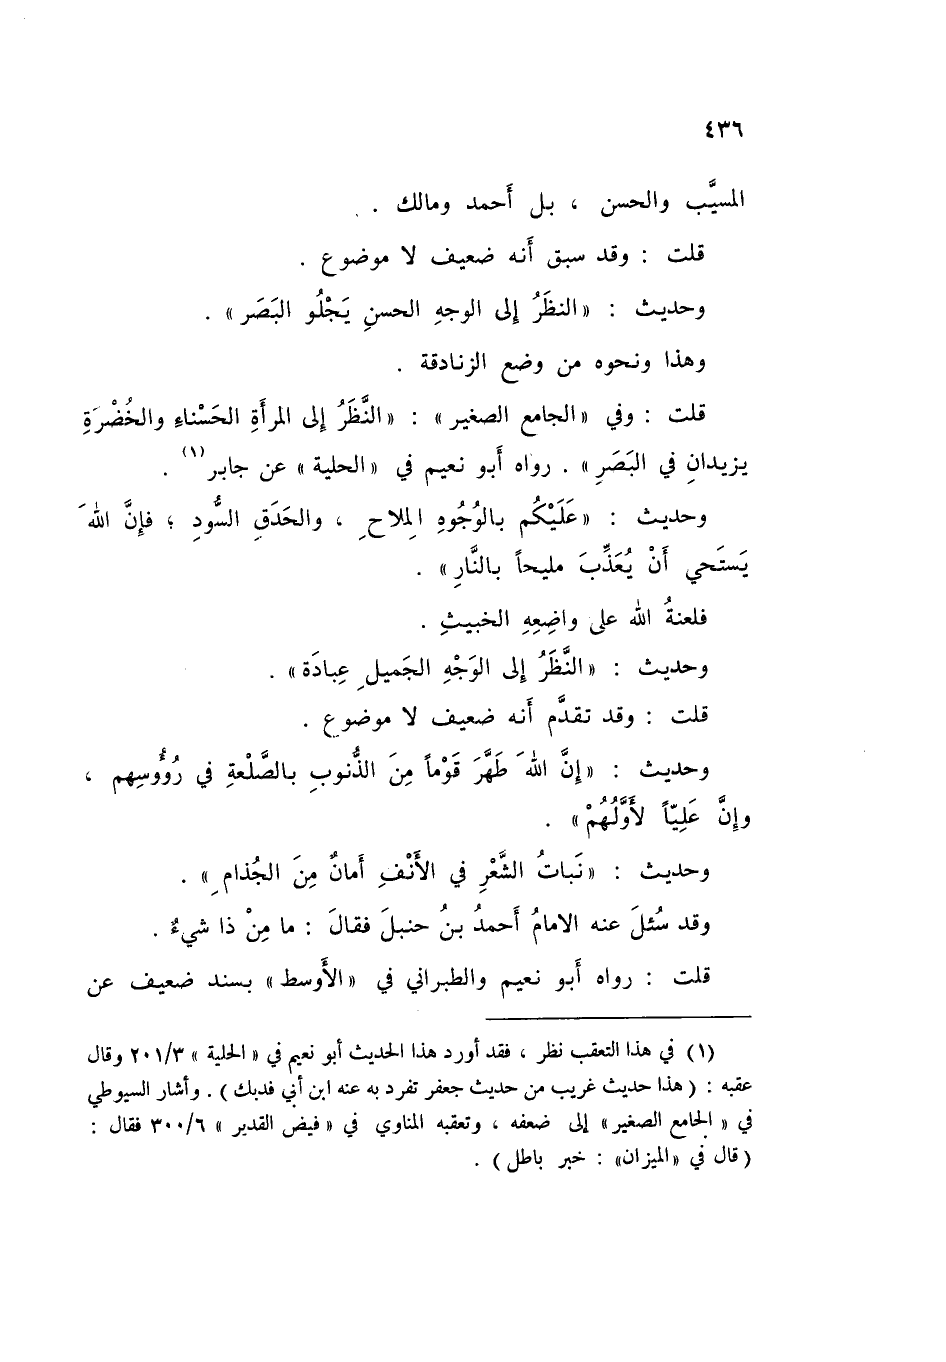 ٤٣٦
المسيَّب والحسن ، بل أَحمد ومالك .
قلت : وقد سبق أَنه ضعيف لا موضوع .
وحديث : «النظَرُ إلى الوجهِ الحسنِ يَجْلُو البَصَر» .
وهذا ونحوه من وضع الزنادقة .
قلت : وفي «الجامع الصغير» : «النَّظَرُ إلى المرأَةِ الحَسْناءِ والخُضْرَةِ
يزيدانِ في البَصَرِ» . رواه أَبو نعيم في «الحلية» عن جابر(١) .
وحديث : «عَلَيْكُم بالوُجُوهِ المِلاحِ ، والحَدَقِ السُّودِ ؛ فإنَّ اللهَ
يَستَحي أَنْ يُعَذِّبَ مليحاً بالنَّارِ» .
فلعنةُ الله على واضِعِهِ الخبيثِ .
وحديث : «النَّظَرُ إلى الوَجْهِ الجَميلِ عِبادَة» .
قلت : وقد تقدَّم أَنه ضعيف لا موضوع .
وحديث : «إنَّ اللهَ طَهَّرَ قَوْماً مِنَ الذُّنوبِ بالصَّلْعةِ في رُؤُوسِهم ،
وإنَّ عَلِيّاً لأَوَّلُهُمْ» .
وحديث : «نَباتُ الشَّعْرِ في الأَنْفِ أَمانٌ مِنَ الجُذامِ» .
وقد سُئلَ عنه الامامُ أَحمدُ بنُ حنبلَ فقالَ : ما مِنْ ذا شيءٌ .
قلت : رواه أَبو نعيم والطبراني في «الأَوسط» بسند ضعيف عن
(١) في هذا التعقب نظر ، فقد أورد هذا الحديث أبو نعيم في «الحلية» ٢٠١/٣ وقال
عقبه : ( هذا حديث غريب من حديث جعفر تفرد به عنه ابن أبي فديك ) . وأشار السيوطي
في «الجامع الصغير» إلى ضعفه ، وتعقبه المناوي في «فيض القدير» ٣٠٠/٦ فقال :
( قال في «الميزان» : خبر باطل ) .